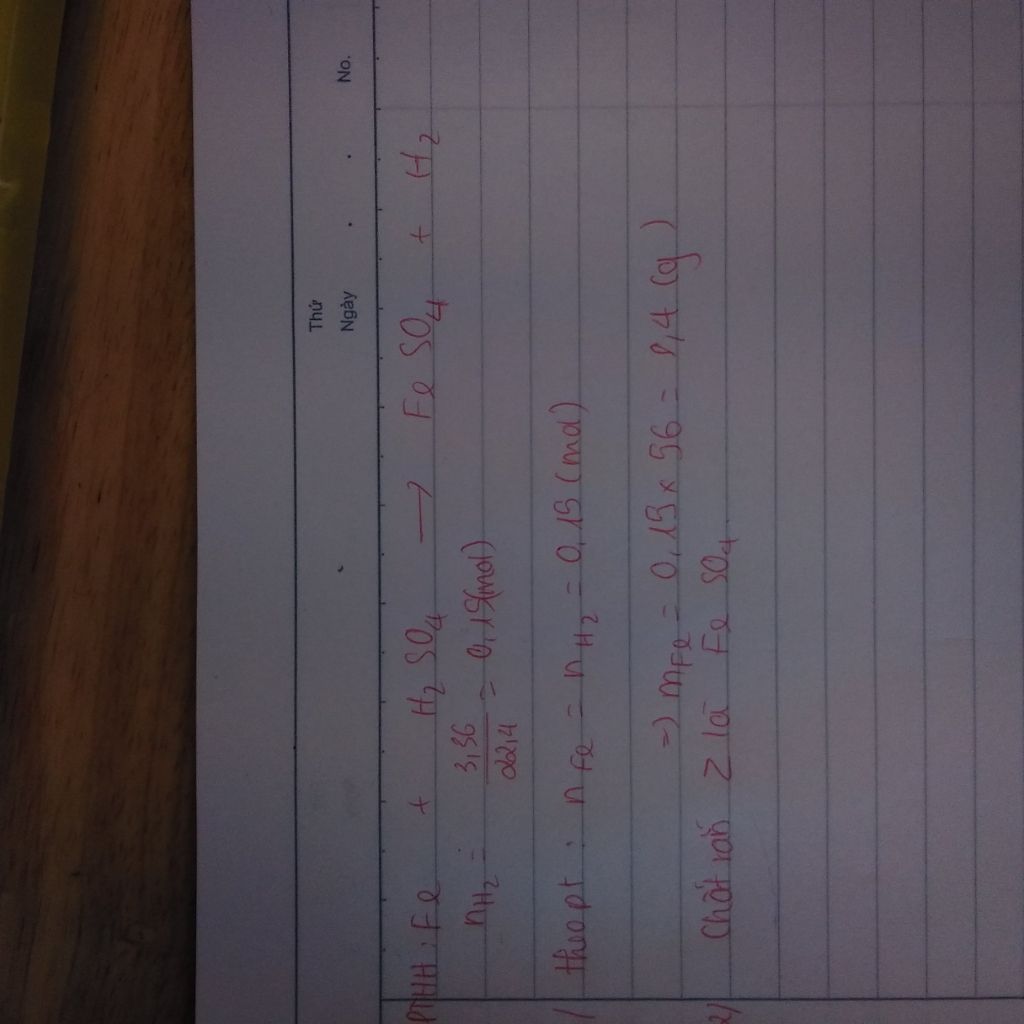 No.
Thứ
Ngày
PTHH: Fe + H2SO4 → FeSO4 + H2
nH2 = 3,36/22,4 = 0,15(mol)
1/ theo pt: nFe = nH2 = 0,15 (mol)
=> mFe = 0,15 x 56 = 8,4 (g)
2/ Chất rắn Z là FeSO4.